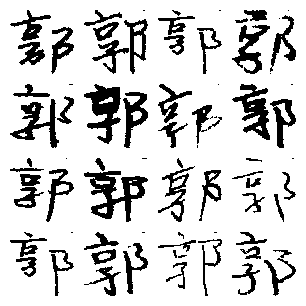 郭郭郭郭
郭郭郭郭
郭郭郭郭
郭郭郭郭